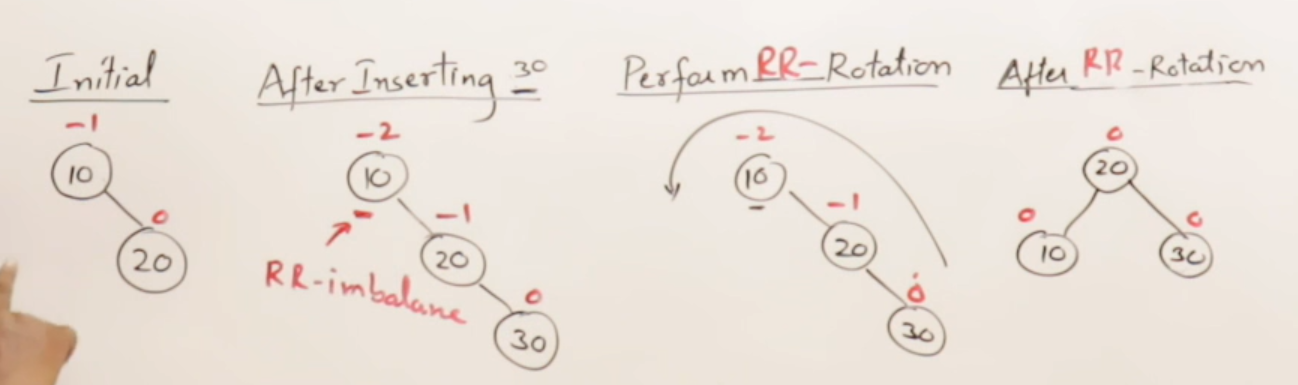 Initial
-1
10
0
20
After Inserting 30
-2
10
-1
20
0
30
RR-imbalane
Perform RR-Rotation
-2
10
-1
20
0
30
After RR-Rotation
0
20
0
10
0
30